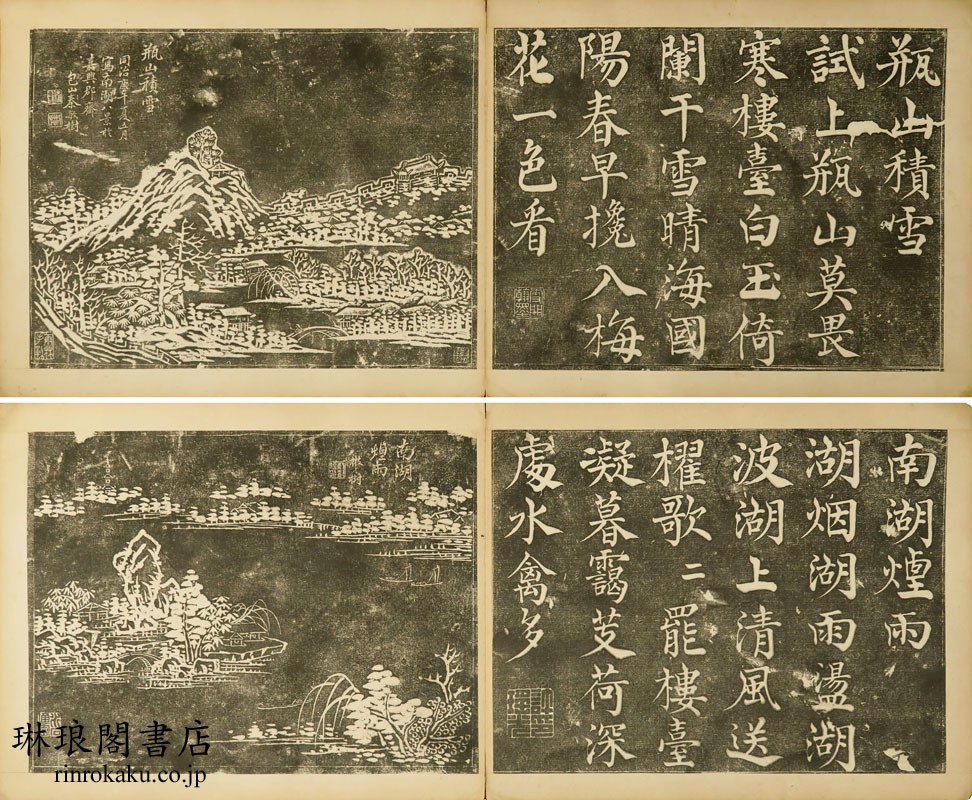 瓶山積雪
試上瓶山莫畏
寒樓臺白玉倚
闌干雪晴海國
陽春早攙入梅
花一色看
瓶山積雪
同治庚午夏五月
寫南湖八景於
嘉興郡齋
包山秦敏樹
南湖煙雨
湖烟湖雨盪湖
波湖上清風送
櫂歌二罷樓臺
凝暮靄芰荷深
處水禽多
南湖
烟雨
敏樹
琳琅閣書店
rinrokaku.co.jp